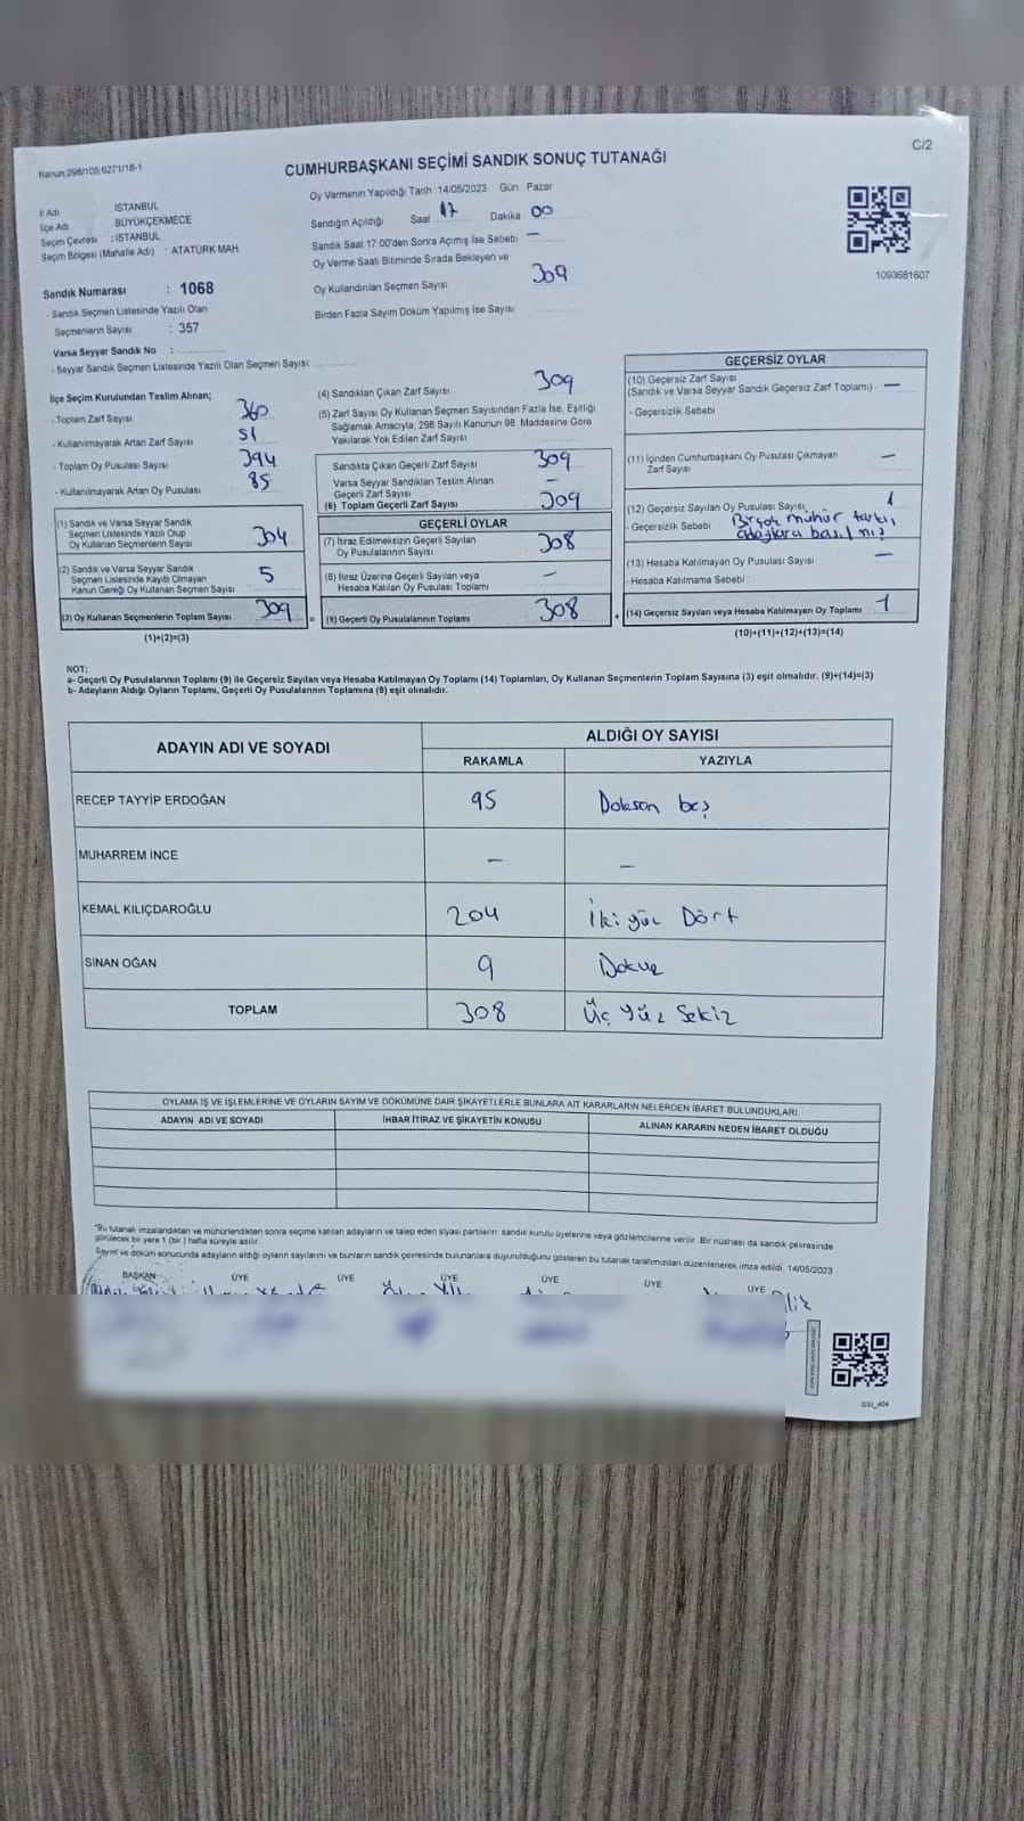 Kanun:298/105;6271/18-1
C/2
CUMHURBAŞKANI SEÇİMİ SANDIK SONUÇ TUTANAĞI
Oy Vermenin Yapıldığı Tarih :14/05/2023 Gün Pazar
İl Adı : İSTANBUL
İlçe Adı : BÜYÜKÇEKMECE
Seçim Çevresi : İSTANBUL
Seçim Bölgesi (Mahalle Adı) : ATATÜRK MAH
Sandık Numarası : 1068
- Sandık Seçmen Listesinde Yazılı Olan
Seçmenlerin Sayısı : 357
Varsa Seyyar Sandık No :
- Seyyar Sandık Seçmen Listesinde Yazılı Olan Seçmen Sayısı:
Sandığın Açıldığı Saat 17 Dakika 00
Sandık Saat 17:00'den Sonra Açılmış İse Sebebi —
Oy Verme Saati Bitiminde Sırada Bekleyen ve
Oy Kullandırılan Seçmen Sayısı 309
Birden Fazla Sayım Döküm Yapılmış İse Sayısı
1093681607
İlçe Seçim Kurulundan Teslim Alınan;
- Toplam Zarf Sayısı 360
- Kullanılmayarak Artan Zarf Sayısı 51
- Toplam Oy Pusulası Sayısı 394
- Kullanılmayarak Artan Oy Pusulası 85
(1) Sandık ve Varsa Seyyar Sandık
Seçmen Listesinde Yazılı Olup
Oy Kullanan Seçmenlerin Sayısı 304
(2) Sandık ve Varsa Seyyar Sandık
Seçmen Listesinde Kayıtlı Olmayan
Kanun Gereği Oy Kullanan Seçmen Sayısı 5
(3) Oy Kullanan Seçmenlerin Toplam Sayısı 309 =
(1)+(2)=(3)
(4) Sandıktan Çıkan Zarf Sayısı 309
(5) Zarf Sayısı Oy Kullanan Seçmen Sayısından Fazla İse, Eşitliği
Sağlamak Amacıyla; 298 Sayılı Kanunun 98. Maddesine Göre
Yakılarak Yok Edilen Zarf Sayısı
Sandıkta Çıkan Geçerli Zarf Sayısı 309
Varsa Seyyar Sandıktan Teslim Alınan
Geçerli Zarf Sayısı —
(6) Toplam Geçerli Zarf Sayısı 309
GEÇERLİ OYLAR
(7) İtiraz Edilmeksizin Geçerli Sayılan
Oy Pusulalarının Sayısı 308
(8) İtiraz Üzerine Geçerli Sayılan veya
Hesaba Katılan Oy Pusulası Toplamı —
(9) Geçerli Oy Pusulalarının Toplamı 308 +
GEÇERSİZ OYLAR
(10) Geçersiz Zarf Sayısı
(Sandık ve Varsa Seyyar Sandık Geçersiz Zarf Toplamı) —
- Geçersizlik Sebebi
(11) İçinden Cumhurbaşkanı Oy Pusulası Çıkmayan
Zarf Sayısı —
(12) Geçersiz Sayılan Oy Pusulası Sayısı 1
- Geçersizlik Sebebi Birçok mühür farklı
adaylara basılmış
(13) Hesaba Katılmayan Oy Pusulası Sayısı —
- Hesaba Katılmama Sebebi
(14) Geçersiz Sayılan veya Hesaba Katılmayan Oy Toplamı 1
(10)+(11)+(12)+(13)=(14)
NOT:
a- Geçerli Oy Pusulalarının Toplamı (9) ile Geçersiz Sayılan veya Hesaba Katılmayan Oy Toplamı (14) Toplamları, Oy Kullanan Seçmenlerin Toplam Sayısına (3) eşit olmalıdır. (9)+(14)=(3)
b- Adayların Aldığı Oyların Toplamı, Geçerli Oy Pusulalarının Toplamına (9) eşit olmalıdır.
ADAYIN ADI VE SOYADI
ALDIĞI OY SAYISI
RAKAMLA YAZIYLA
RECEP TAYYİP ERDOĞAN 95 Doksan beş
MUHARREM İNCE — —
KEMAL KILIÇDAROĞLU 204 İki yüz Dört
SİNAN OĞAN 9 Dokuz
TOPLAM 308 Üç Yüz Sekiz
OYLAMA İŞ VE İŞLEMLERİNE VE OYLARIN SAYIM VE DÖKÜMÜNE DAİR ŞİKAYETLERLE BUNLARA AİT KARARLARIN NELERDEN İBARET BULUNDUKLARI
ADAYIN ADI VE SOYADI İHBAR İTİRAZ VE ŞİKAYETİN KONUSU ALINAN KARARIN NEDEN İBARET OLDUĞU
"Bu tutanak imzalandıktan ve mühürlendikten sonra seçime katılan adayların ve talep eden siyasi partilerin sandık kurulu üyelerine veya gözlemcilerine verilir. Bir nüshası da sandık çevresinde
görülecek bir yere 1 (bir) hafta süreyle asılır.
Sayım ve döküm sonucunda adayların aldığı oyların sayılarını ve bunların sandık çevresinde bulunanlara duyurulduğunu gösteren bu tutanak tarafımızdan düzenlenerek imza edildi. 14/05/2023
BAŞKAN ÜYE ÜYE ÜYE ÜYE ÜYE ÜYE